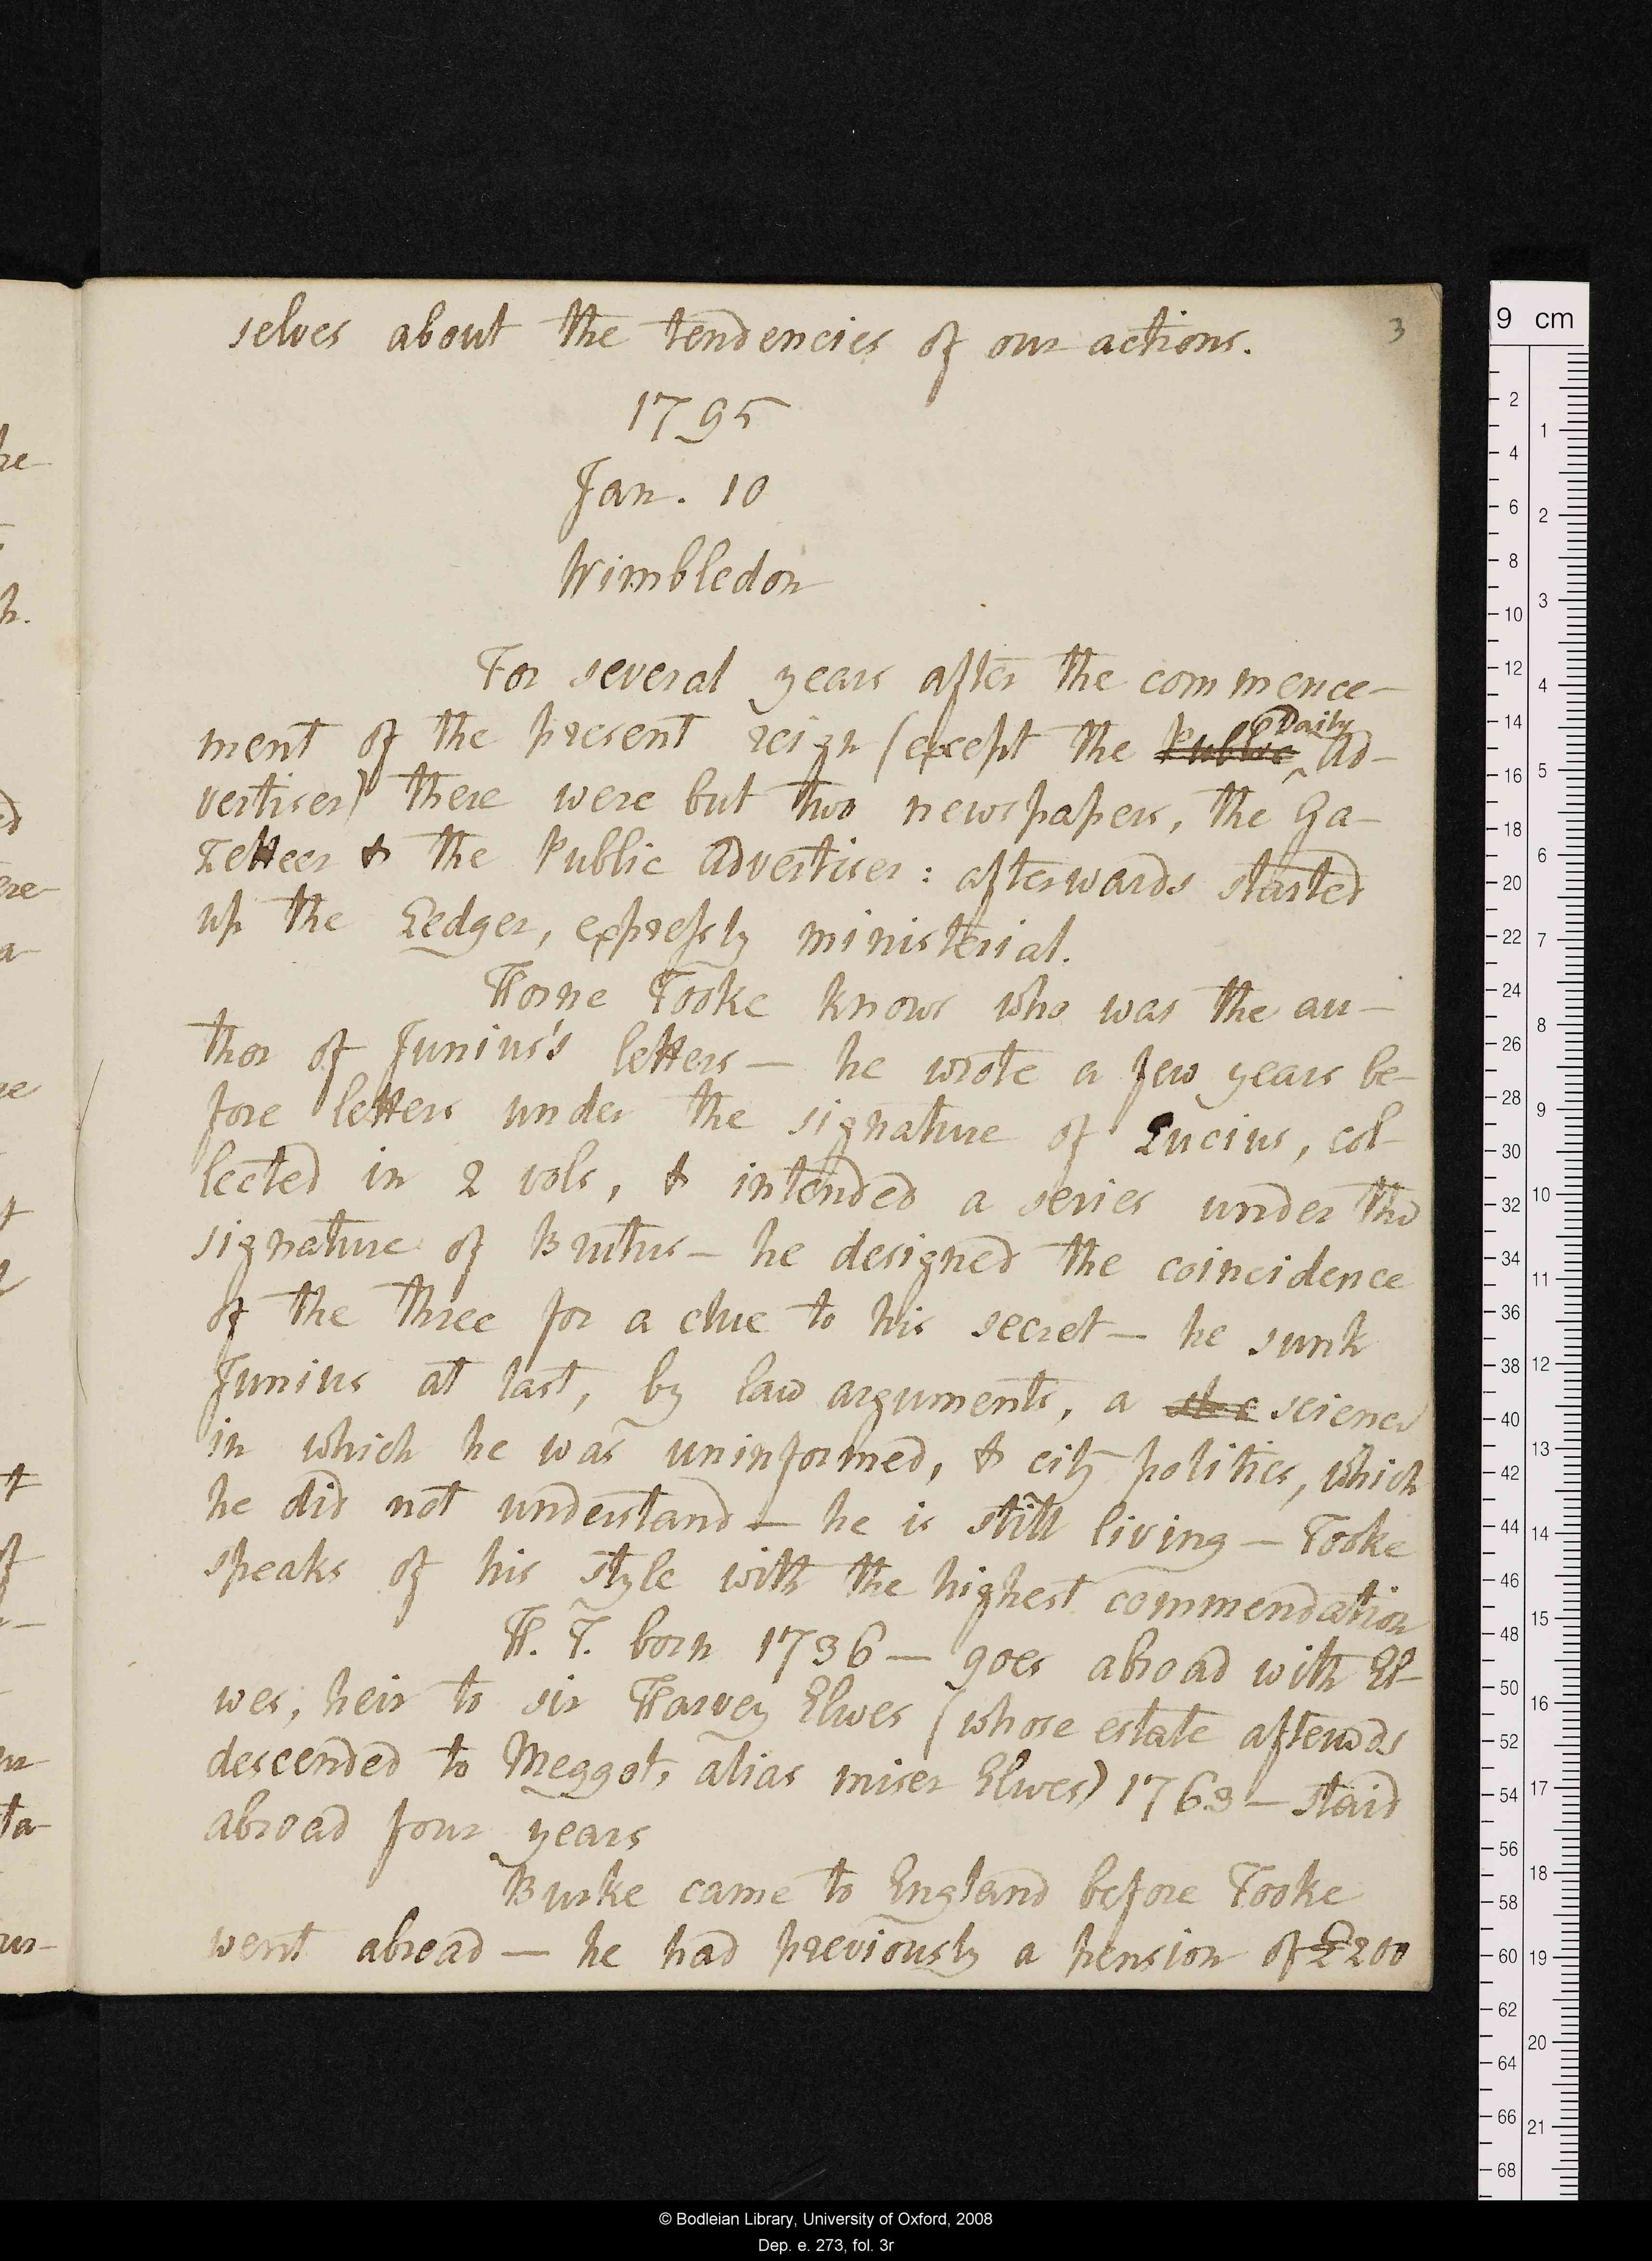 selves about the tendencies of our actions.
3
1795
Jan. 10
Wimbledon
For several years after the commence-
ment of the present reign (except the Public Daily Ad-
vertiser) there were but two newspapers, the Ga-
zetteer & the Public Advertiser: afterwards started
up the Ledger, expressly ministerial.
Horne Tooke knows who was the au-
thor of Junius's letters — he wrote a few years be-
fore letters under the signature of Lucius, col-
lected in 2 vols, & intended a series under the
signature of Brutus — he designed the coincidence
of the three for a clue to his secret — he sunk
Junius at last, by law arguments, a science
in which he was uninformed, & city politics, which
he did not understand — he is still living — Tooke
speaks of his style with the highest commendation
H. T. born 1736 — goes abroad with El-
wes, heir to sir Harvey Elwes (whose estate afterwds
descended to Meggot, alias miser Elwes) 1763 — staid
abroad four years
Burke came to England before Tooke
went abroad — he had previously a pension of £200
9 cm
2
4
6
8
10
12
14
16
18
20
22
24
26
28
30
32
34
36
38
40
42
44
46
48
50
52
54
56
58
60
62
64
66
68
1
2
3
4
5
6
7
8
9
10
11
12
13
14
15
16
17
18
19
20
21
© Bodleian Library, University of Oxford, 2008
Dep. e. 273, fol. 3r